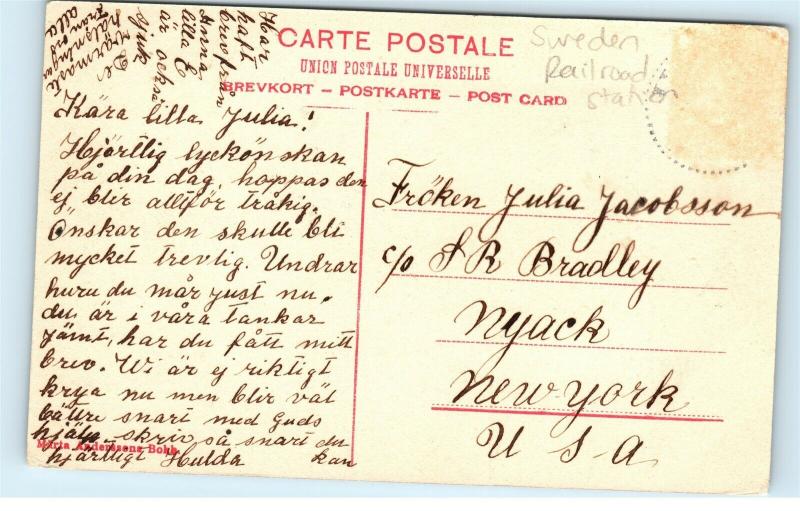 Har
haft
brev från
Anna
lilla E
är också
sjuk
De
varmaste
hälsningar
från oss
alla
CARTE POSTALE
UNION POSTALE UNIVERSELLE
BREVKORT – POSTKARTE – POST CARD
Sweden
Railroad
Station
Kära lilla Julia!
Hjärtlig lyckönskan
på din dag, hoppas den
ej blir allt för tråkig.
Önskar den skulle bli
mycket trevlig. Undrar
huru du mår just nu.
du är i våra tankar
jämt, har du fått mitt
brev. Wi är ej riktigt
krya nu men blir väl
bättre snart med Guds
hjälp skriv så snart du
kan
hjärtligt Hulda
Märta Anderssons Bokh.
Fröken Julia Jacobsson
c/o S R Bradley
Nyack
New York
U S A